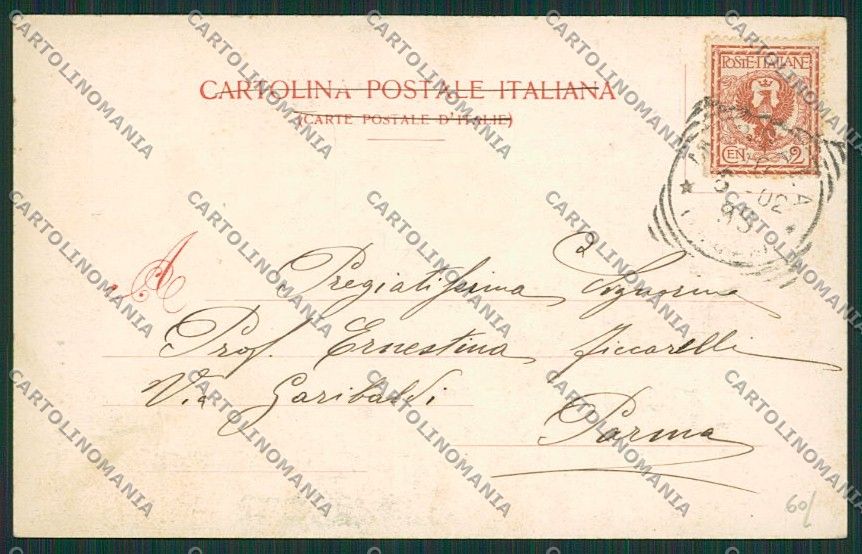 CARTOLINA POSTALE ITALIANA
(CARTE POSTALE D'ITALIE)
POSTE·ITALIANE
CEN 2
02
A
Pregiatissima Signorina
Prof. Ernestina Ficcarelli
Via Garibaldi
Parma
60/
CARTOLINOMANIA